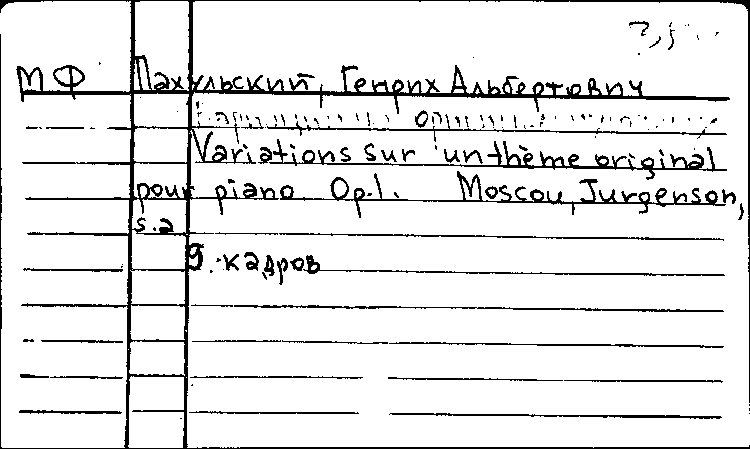 МФ Пахульский, Генрих Альбертович
Variations sur un thème original
pour piano Op.1. Moscou, Jurgenson,
s.a
9. кадров